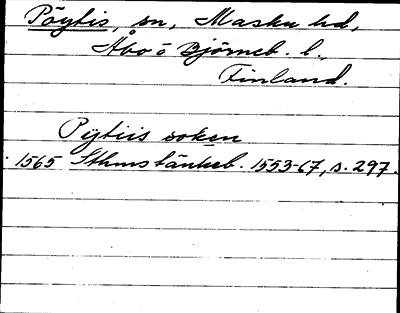 Pöytis, sn, Masku hd,
Åbo o Björneb. l.,
Finland.
Pytiis soken
1565 Sthms tänkeb. 1553-67, s. 297.